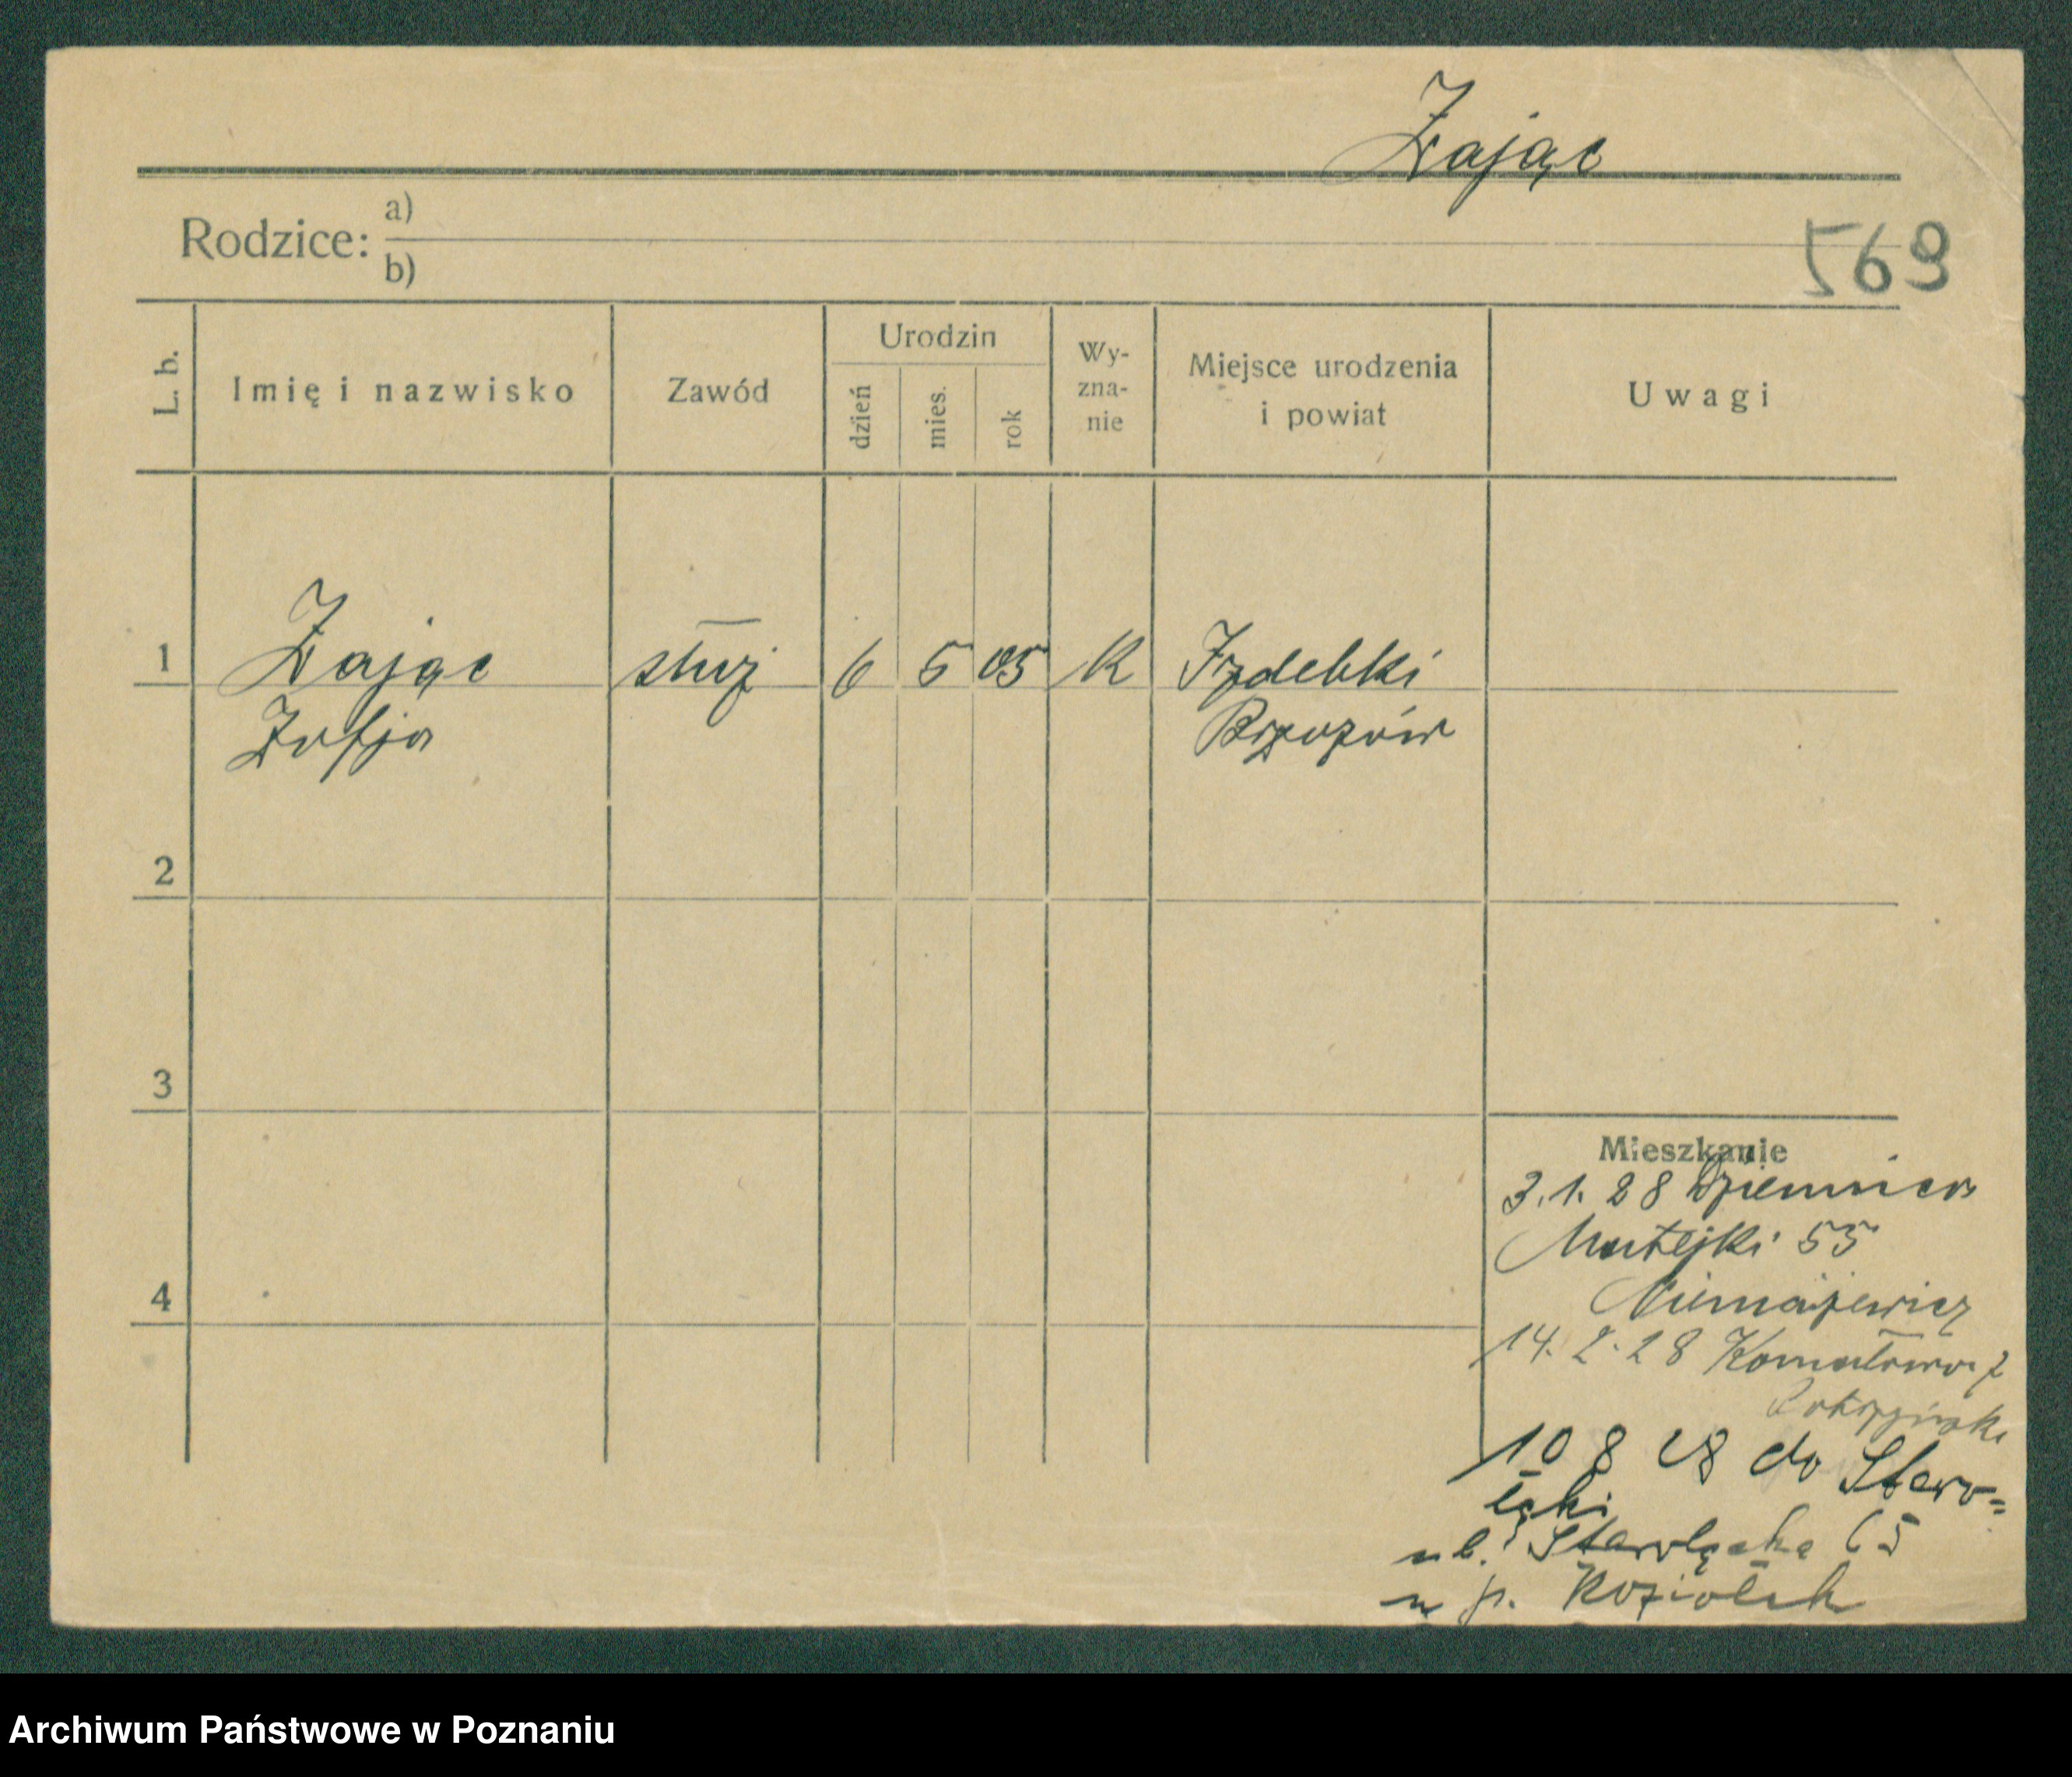 Zając
Rodzice: a)
b)
569
L. b.
Imię i nazwisko
Zawód
Urodzin
dzień
mies.
rok
Wy-
zna-
nie
Miejsce urodzenia
i powiat
Uwagi
1 Zając służ 6 5 05 K Izdebki
Zofja Brzozów
2
3
4
Mieszkanie
3.1.28
Matejki 55
Niemajewicz
14.2.28
10 8 28 do Staro=
łęki
ul. Starołęcka 65
u p. Koziołek
Archiwum Państwowe w Poznaniu